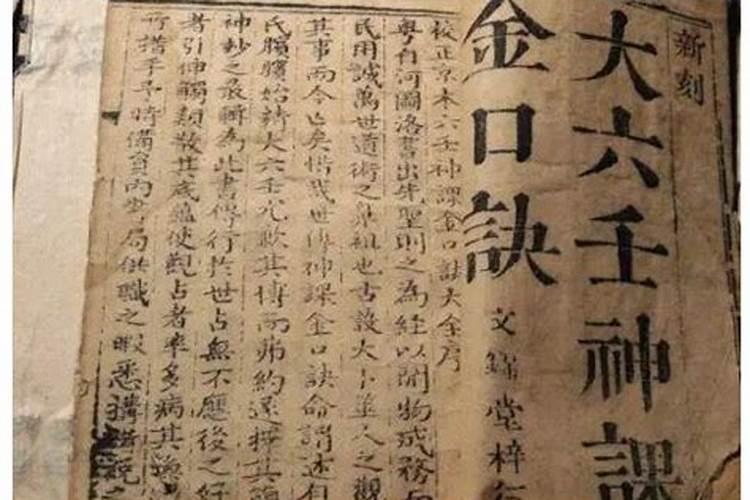 新刻
大六壬神課
金口訣
文錦堂梓
校正京本六壬神課金口訣大全序
粵自河圖洛書出先聖則之為經以開物成務而
民用誠萬世道術之鼻祖也古設大卜筮人之觀
其事而今亡矣惜哉世傳神課金口訣命謂述自
氏臏臏始大六壬其博而弗約遂擇其
神妙之最輯為此書傳行於世占無不應後之好
者引伸觸類散其底蘊使觀占者率多病其
所措手予時備員內步局供職之暇悉搆諸說